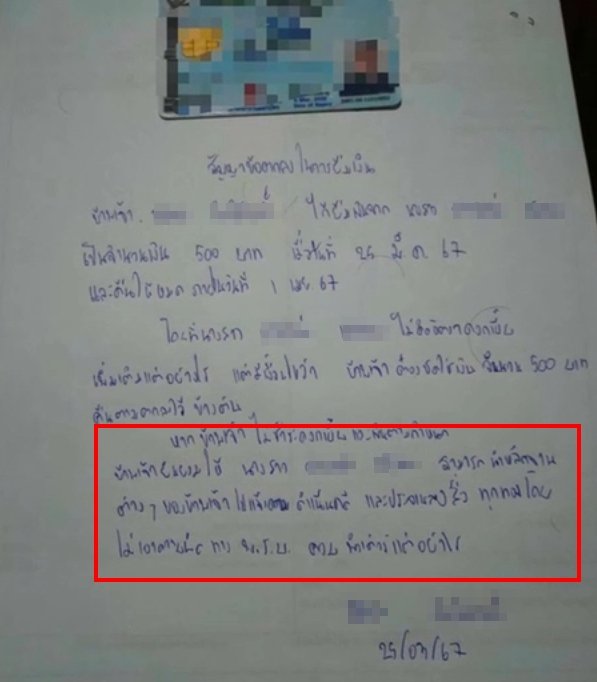 สัญญาข้อตกลงในการยืมเงิน
ข้าพเจ้า ได้ยืมเงินจาก นางสาว
เป็นจำนวนเงิน 500 บาท เมื่อวันที่ 25 มี.ค. 67
และคืนให้หมด ภายในวันที่ 1 เมย. 67
โดยที่นางสาว ไม่คิดอัตราดอกเบี้ย
เพิ่มเติมแต่อย่างไร แต่มีเงื่อนไขว่า ข้าพเจ้า ต้องชดใช้เงิน จำนวน 500 บาท
คืนตามตกลงไว้ ข้างต้น
หาก ข้าพเจ้า ไม่ชำระดอกเบี้ย และเงินตามกำหนด
ข้าพเจ้ายินยอมให้ นางสาว สามารถ นำหลักฐาน
ต่างๆ ของข้าพเจ้า ไปแจ้งความ ดำเนินคดี และประจานลงสื่อ ทุกทางโดย
ไม่เอาความผิด ทาง พ.ร.บ. คอมพิวเตอร์แต่อย่างไร
25/03/67